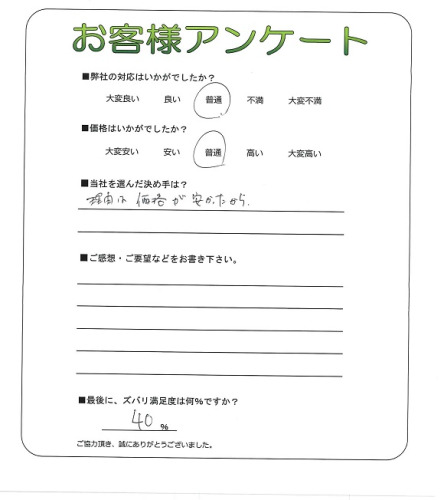 お客様アンケート
■弊社の対応はいかがでしたか？
大変良い 良い 普通 不満 大変不満
■価格はいかがでしたか？
大変安い 安い 普通 高い 大変高い
■当社を選んだ決め手は？
理由は 価格が安かたから.
■ご感想・ご要望などをお書き下さい。
■最後に、ズバリ満足度は何％ですか？
40 %
ご協力頂き、誠にありがとうございました。